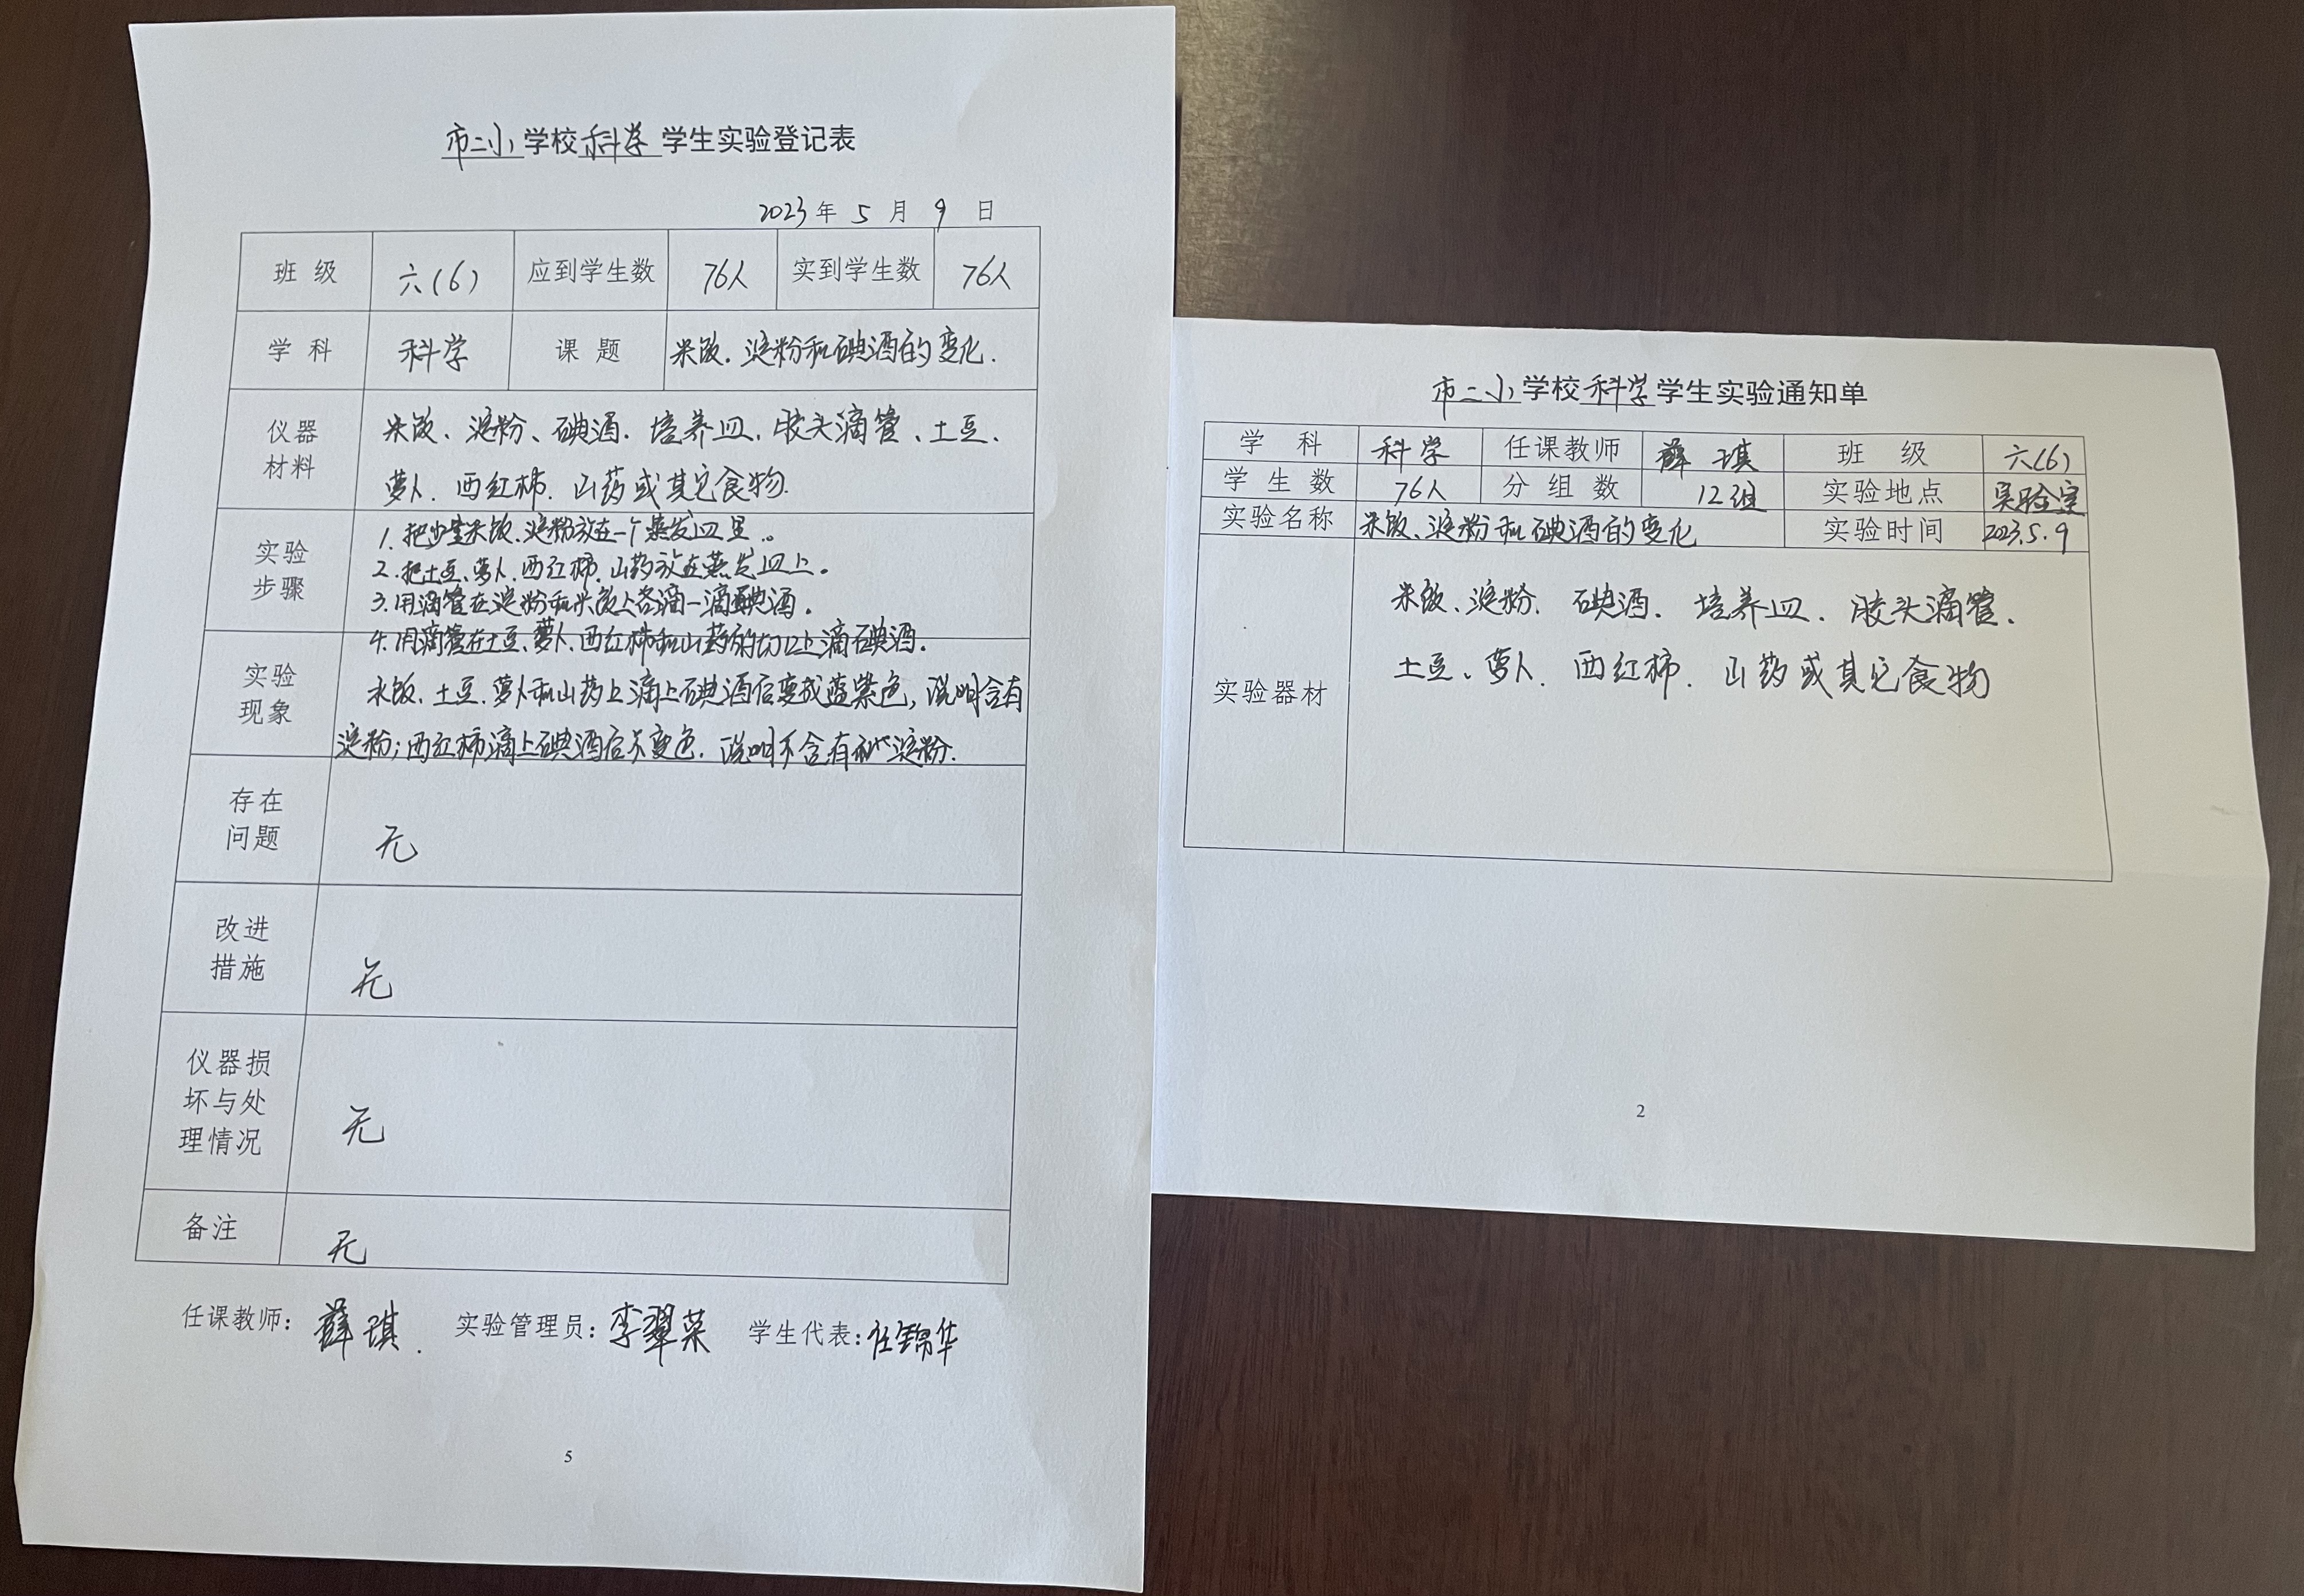 市二小学校科学学生实验登记表
2023年5月9日
班级 六(6) 应到学生数 76人 实到学生数 76人
学科 科学 课题 米饭、淀粉和碘酒的变化.
仪器
材料
米饭、淀粉、碘酒、培养皿、胶头滴管、土豆、
萝卜、西红柿、山药或其它食物.
实验
步骤
1.把少量米饭、淀粉放在一个蒸发皿里。
2.把土豆、萝卜、西红柿、山药放在蒸发皿上。
3.用滴管在淀粉和米饭上各滴一滴碘酒。
4.用滴管在土豆、萝卜、西红柿和山药的切口上滴碘酒。
实验
现象
米饭、土豆、萝卜和山药上滴上碘酒后变成蓝紫色,说明含有
淀粉;西红柿滴上碘酒后不变色.说明不含有淀粉.
存在
问题
无
改进
措施
无
仪器损
坏与处
理情况
无
备注 无
任课教师: 薛琪. 实验管理员: 李翠荣 学生代表: 任锦华
5
市二小学校科学学生实验通知单
学科 科学 任课教师 薛琪 班级 六(6)
学生数 76人 分组数 12组 实验地点 实验室
实验名称 米饭、淀粉和碘酒的变化 实验时间 2023.5.9
实验器材
米饭、淀粉、碘酒、培养皿、胶头滴管、
土豆、萝卜、西红柿、山药或其它食物
2